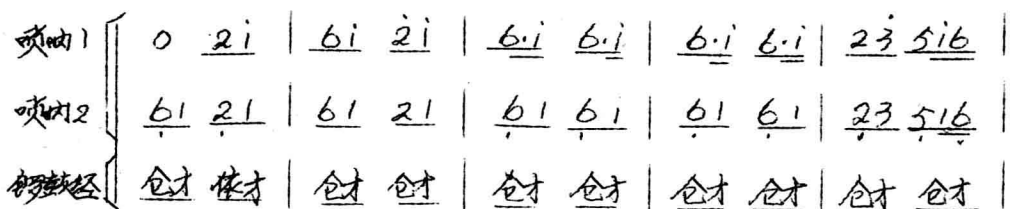 唢呐1 0 2i | 6i 2i | 6·i 6·i | 6·i 6·i | 23 5i6 |
唢呐2 61 21 | 61 21 | 61 61 | 61 61 | 23 516 |
锣鼓经 仓才 依才 | 仓才 仓才 | 仓才 仓才 | 仓才 仓才 | 仓才 仓才 |